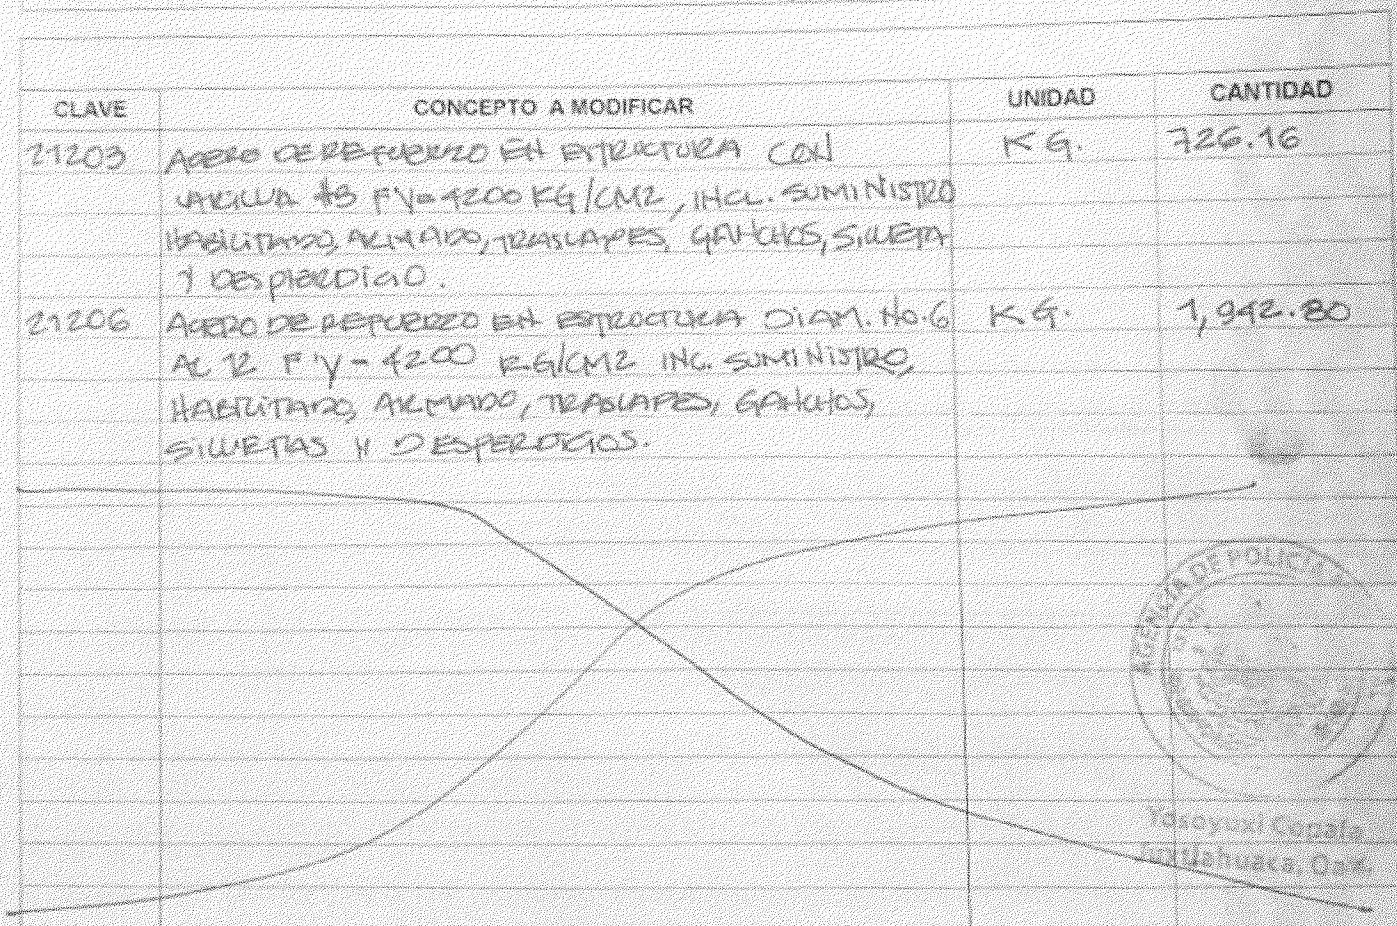 CLAVE CONCEPTO A MODIFICAR UNIDAD CANTIDAD
21203 ACERO DE REFUERZO EN ESTRUCTURA CON KG. 726.16
VARILLA #3 F'Y=4200 KG/CM2, INCL. SUMINISTRO
HABILITADO, ARMADO, TRASLAPES, GANCHOS, SILLETA
Y DESPIERDICIO.
21206 ACERO DE REFUERZO EN ESTRUCTURA DIAM. No.6 KG. 1,942.80
AL 12 F'Y=4200 KG/CM2 INC. SUMINISTRO,
HABILITADO, ARMADO, TRASLAPES, GANCHOS,
SILLETAS Y DESPERDICIOS.
AGENCIA DE POLICIA
Yosoyuxi Copala,
Juxtlahuaca, Oax.